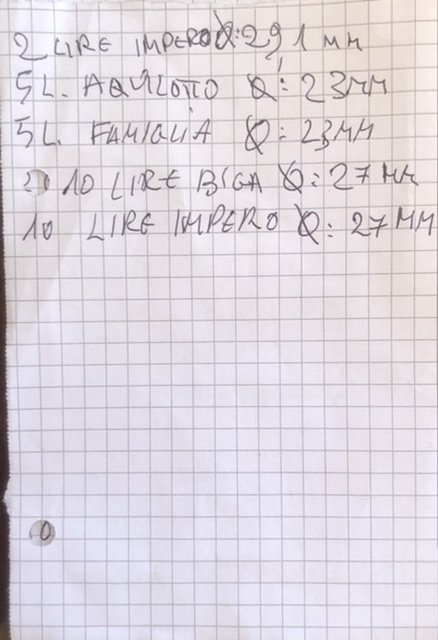 2 LIRE IMPERO Ø: 29,1 MM
5 L. AQUILOTTO Ø: 23MM
5 L. FAMIGLIA Ø: 23MM
10 LIRE BIGA Ø: 27 MM
10 LIRE IMPERO Ø: 27 MM
0